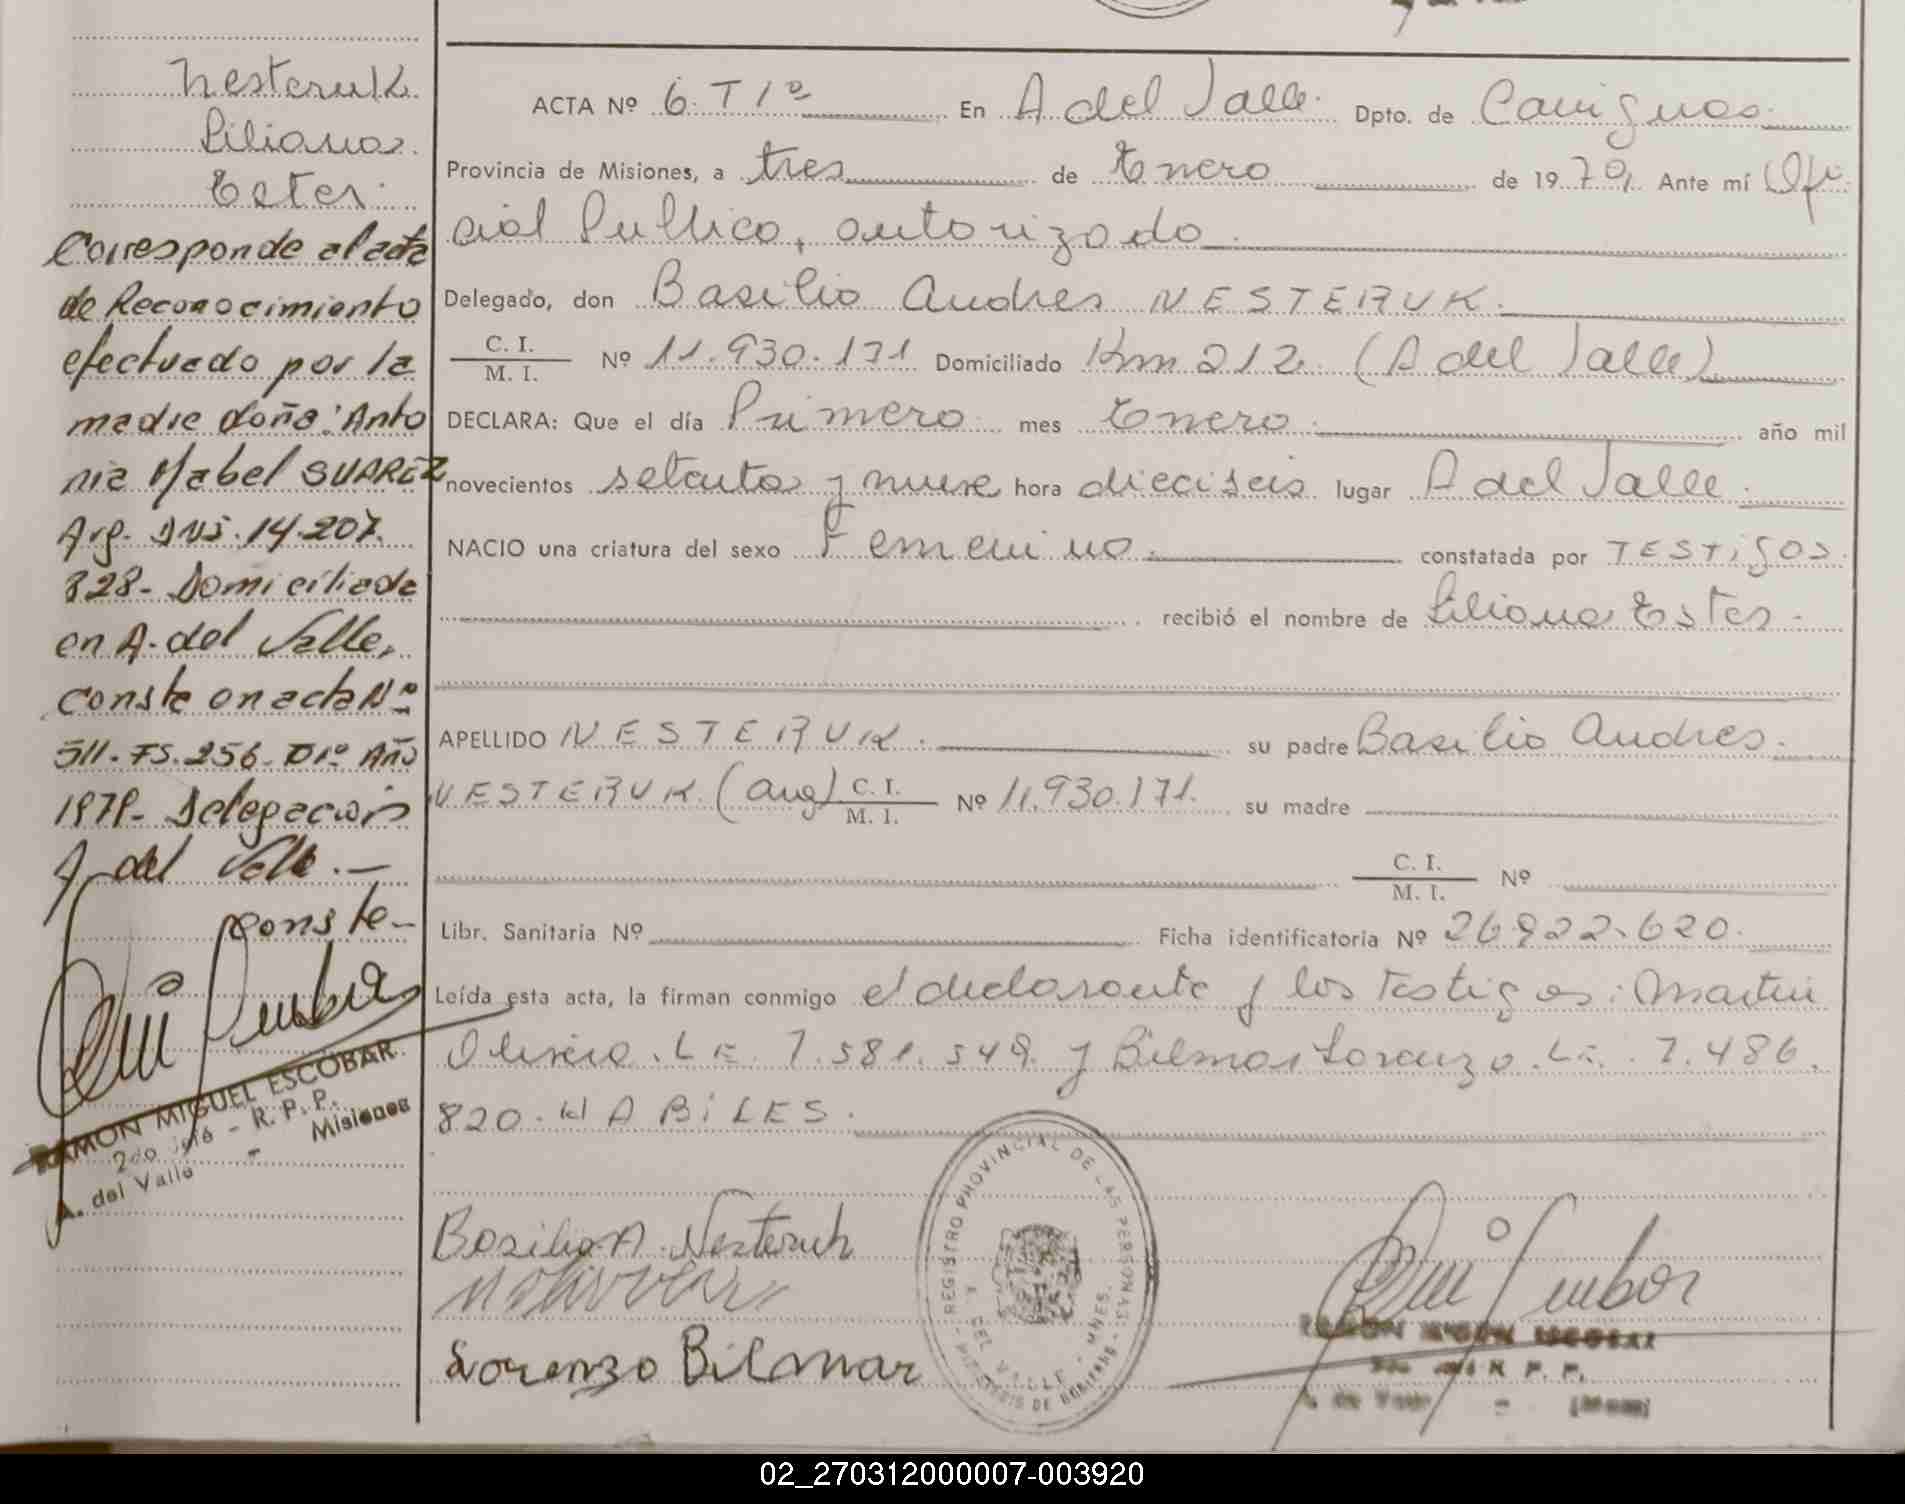 Nesteruk
Liliana
Ester.
Corresponde al acta
de Reconocimiento
efectuado por la
madre doña: Anto
nia Mabel SUAREZ
Arg. DNI. 14.207.
828- Domiciliada
en A. del Valle,
consta en acta Nº
511. FS. 256- Tº1º Año
1979- Delegación
A. del Valle.-
conste-
RAMON MIGUEL ESCOBAR
2do Jefe - R. P. P.
A. del Valle - Misiones
ACTA Nº 6. T1º En A del Valle. Dpto. de Cainguas.
Provincia de Misiones, a tres de Enero de 1979. Ante mí Ofi
cial Publico, autorizado.
Delegado, don Basilio Andres NESTERUK.
C. I. / M. I. Nº 11.930.171 Domiciliado Km 212. (A del Valle)
DECLARA: Que el día Primero mes Enero. año mil
novecientos setenta y nueve hora dieciseis lugar A del Valle.
NACIO una criatura del sexo Femenino. constatada por TESTIGOS.
recibió el nombre de Liliana Ester.
APELLIDO NESTERUK. su padre Basilio Andres.
NESTERUK (Arg) C. I. / M. I. Nº 11.930.171. su madre
C. I. / M. I. Nº
Libr. Sanitaria Nº Ficha identificatoria Nº 26.922.620.
Leída esta acta, la firman conmigo el declarante y los testigos: Martin
Oliveira. L.E. 7.581.549. y Bilmar Lorenzo. L.E. 7.486.
820. HABILES.
Basilio A. Nesteruk
Lorenzo Bilmar
REGISTRO PROVINCIAL DE LAS PERSONAS
A. DEL VALLE - MNES.
MINISTERIO DE GOBIERNO
RAMON MIGUEL ESCOBAR
2do Jefe R. P. P.
A. del Valle - (Mnes)
02_270312000007-003920